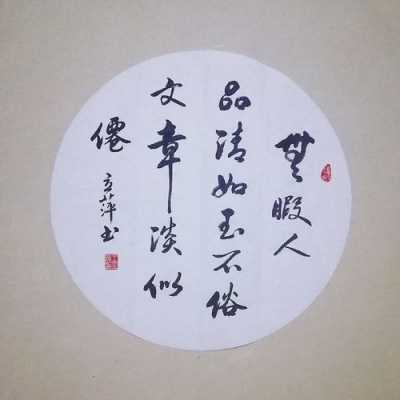 無暇人
品清如玉不俗
文章淡似
僊
立萍书